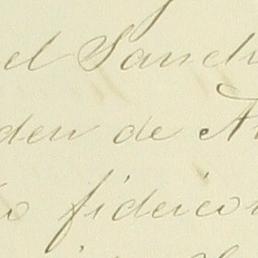 el Sanch
den de A
fideico